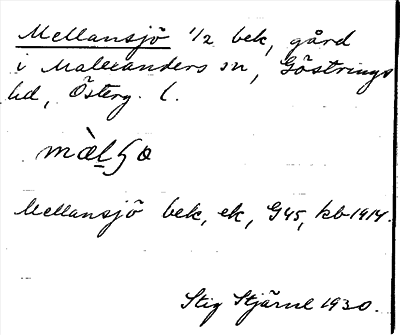 Mellansjö 1/2 bek, gård
i Malexanders sn, Göstrings
hd, Österg. l.
Mellansjö bek, ek, G45, kb 1914.
Stig Stjärne 1930.